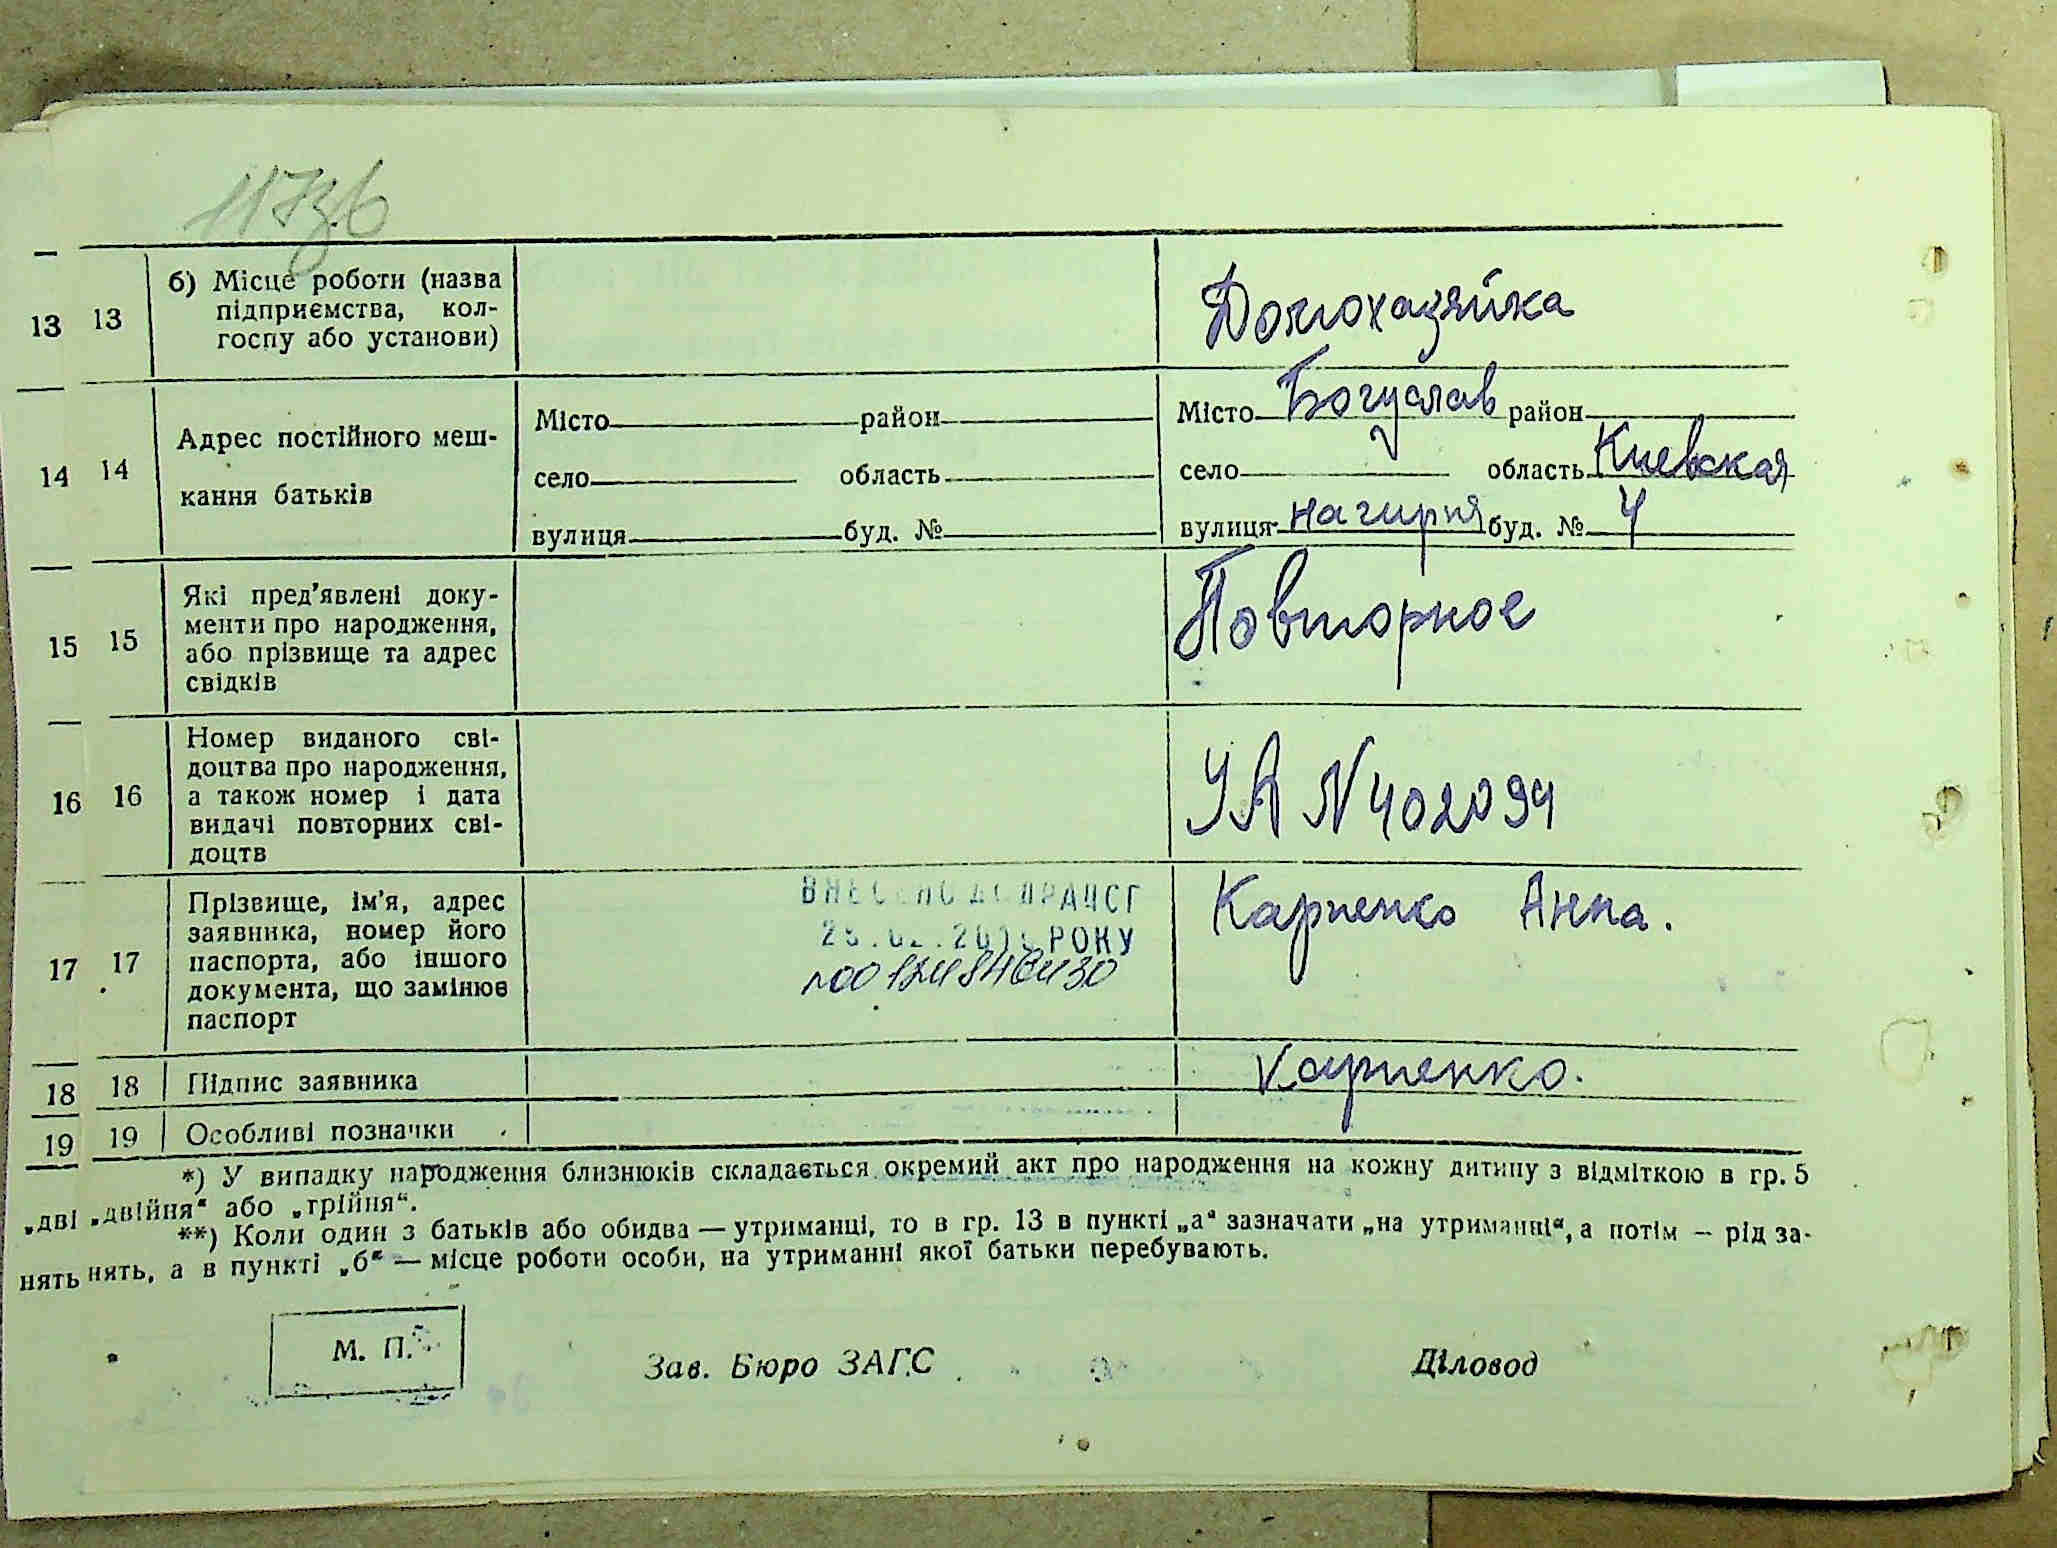 117зб
13 13 б) Місце роботи (назва
підприємства, кол-
госпу або установи)
Домохазяйка
14 14 Адрес постійного меш-
кання батьків
Місто район
село область
вулиця буд. №
Місто Богуслав район
село область Киевская
вулиця нагирня буд. № 4
15 15 Які пред'явлені доку-
менти про народження,
або прізвище та адрес
свідків
Повторное
16 16 Номер виданого сві-
доцтва про народження,
а також номер і дата
видачі повторних сві-
доцтв
УА N 402094
17 17 Прізвище, ім'я, адрес
заявника, номер його
паспорта, або іншого
документа, що замінює
паспорт
ВНЕСЕНО ДО ДРАЦСГ
РОКУ
Карпенко Анна.
18 18 Підпис заявника
Карпенко.
19 19 Особливі позначки
*) У випадку народження близнюків складається окремий акт про народження на кожну дитину з відміткою в гр. 5
„дві „двійня" або „трійня".
**) Коли один з батьків або обидва — утриманці, то в гр. 13 в пункті „а" зазначати „на утриманні", а потім — рід за-
нять нять, а в пункті „б" — місце роботи особи, на утриманні якої батьки перебувають.
М. П.
Зав. Бюро ЗАГС
Діловод